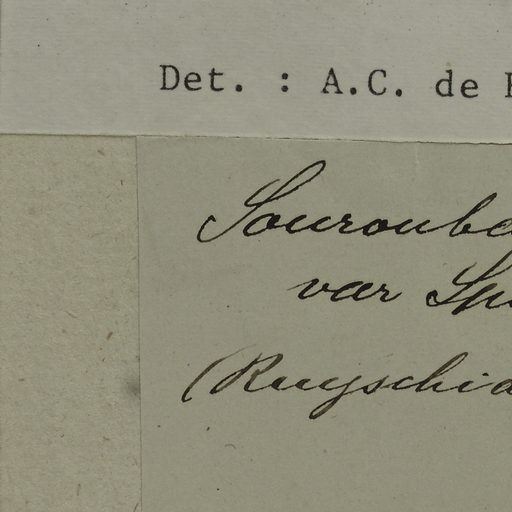 Det. : A.C. de
Sourouba
var Sp
(Ruyschia